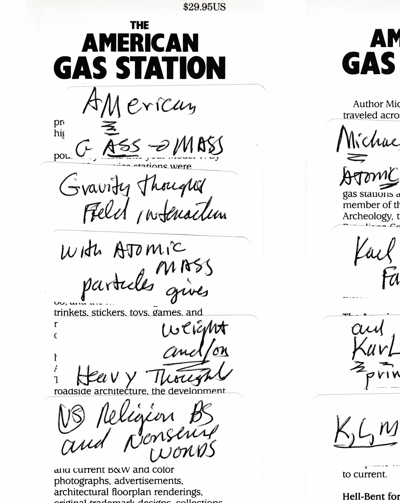 $29.95US
THE
AMERICAN
GAS STATION
AMerican
G ASS → MASS
stations were
Gravity Thought
Field interaction
with ATOMIC
MASS
particles gives
trinkets, stickers, toys, games, and
weight
and/or
Heavy Thought
roadside architecture, the development
VS Religion BS
and Nonsense
WORDS
and current B&W and color
photographs, advertisements,
architectural floorplan renderings,
original trademark designs, collections
AM
GAS
Author Mic
traveled acros
Michae
ATOMIC
gas stations a
member of th
Archeology, t
Karl
Fa
and
Karl
prin
K, G, M
to current.
Hell-Bent for